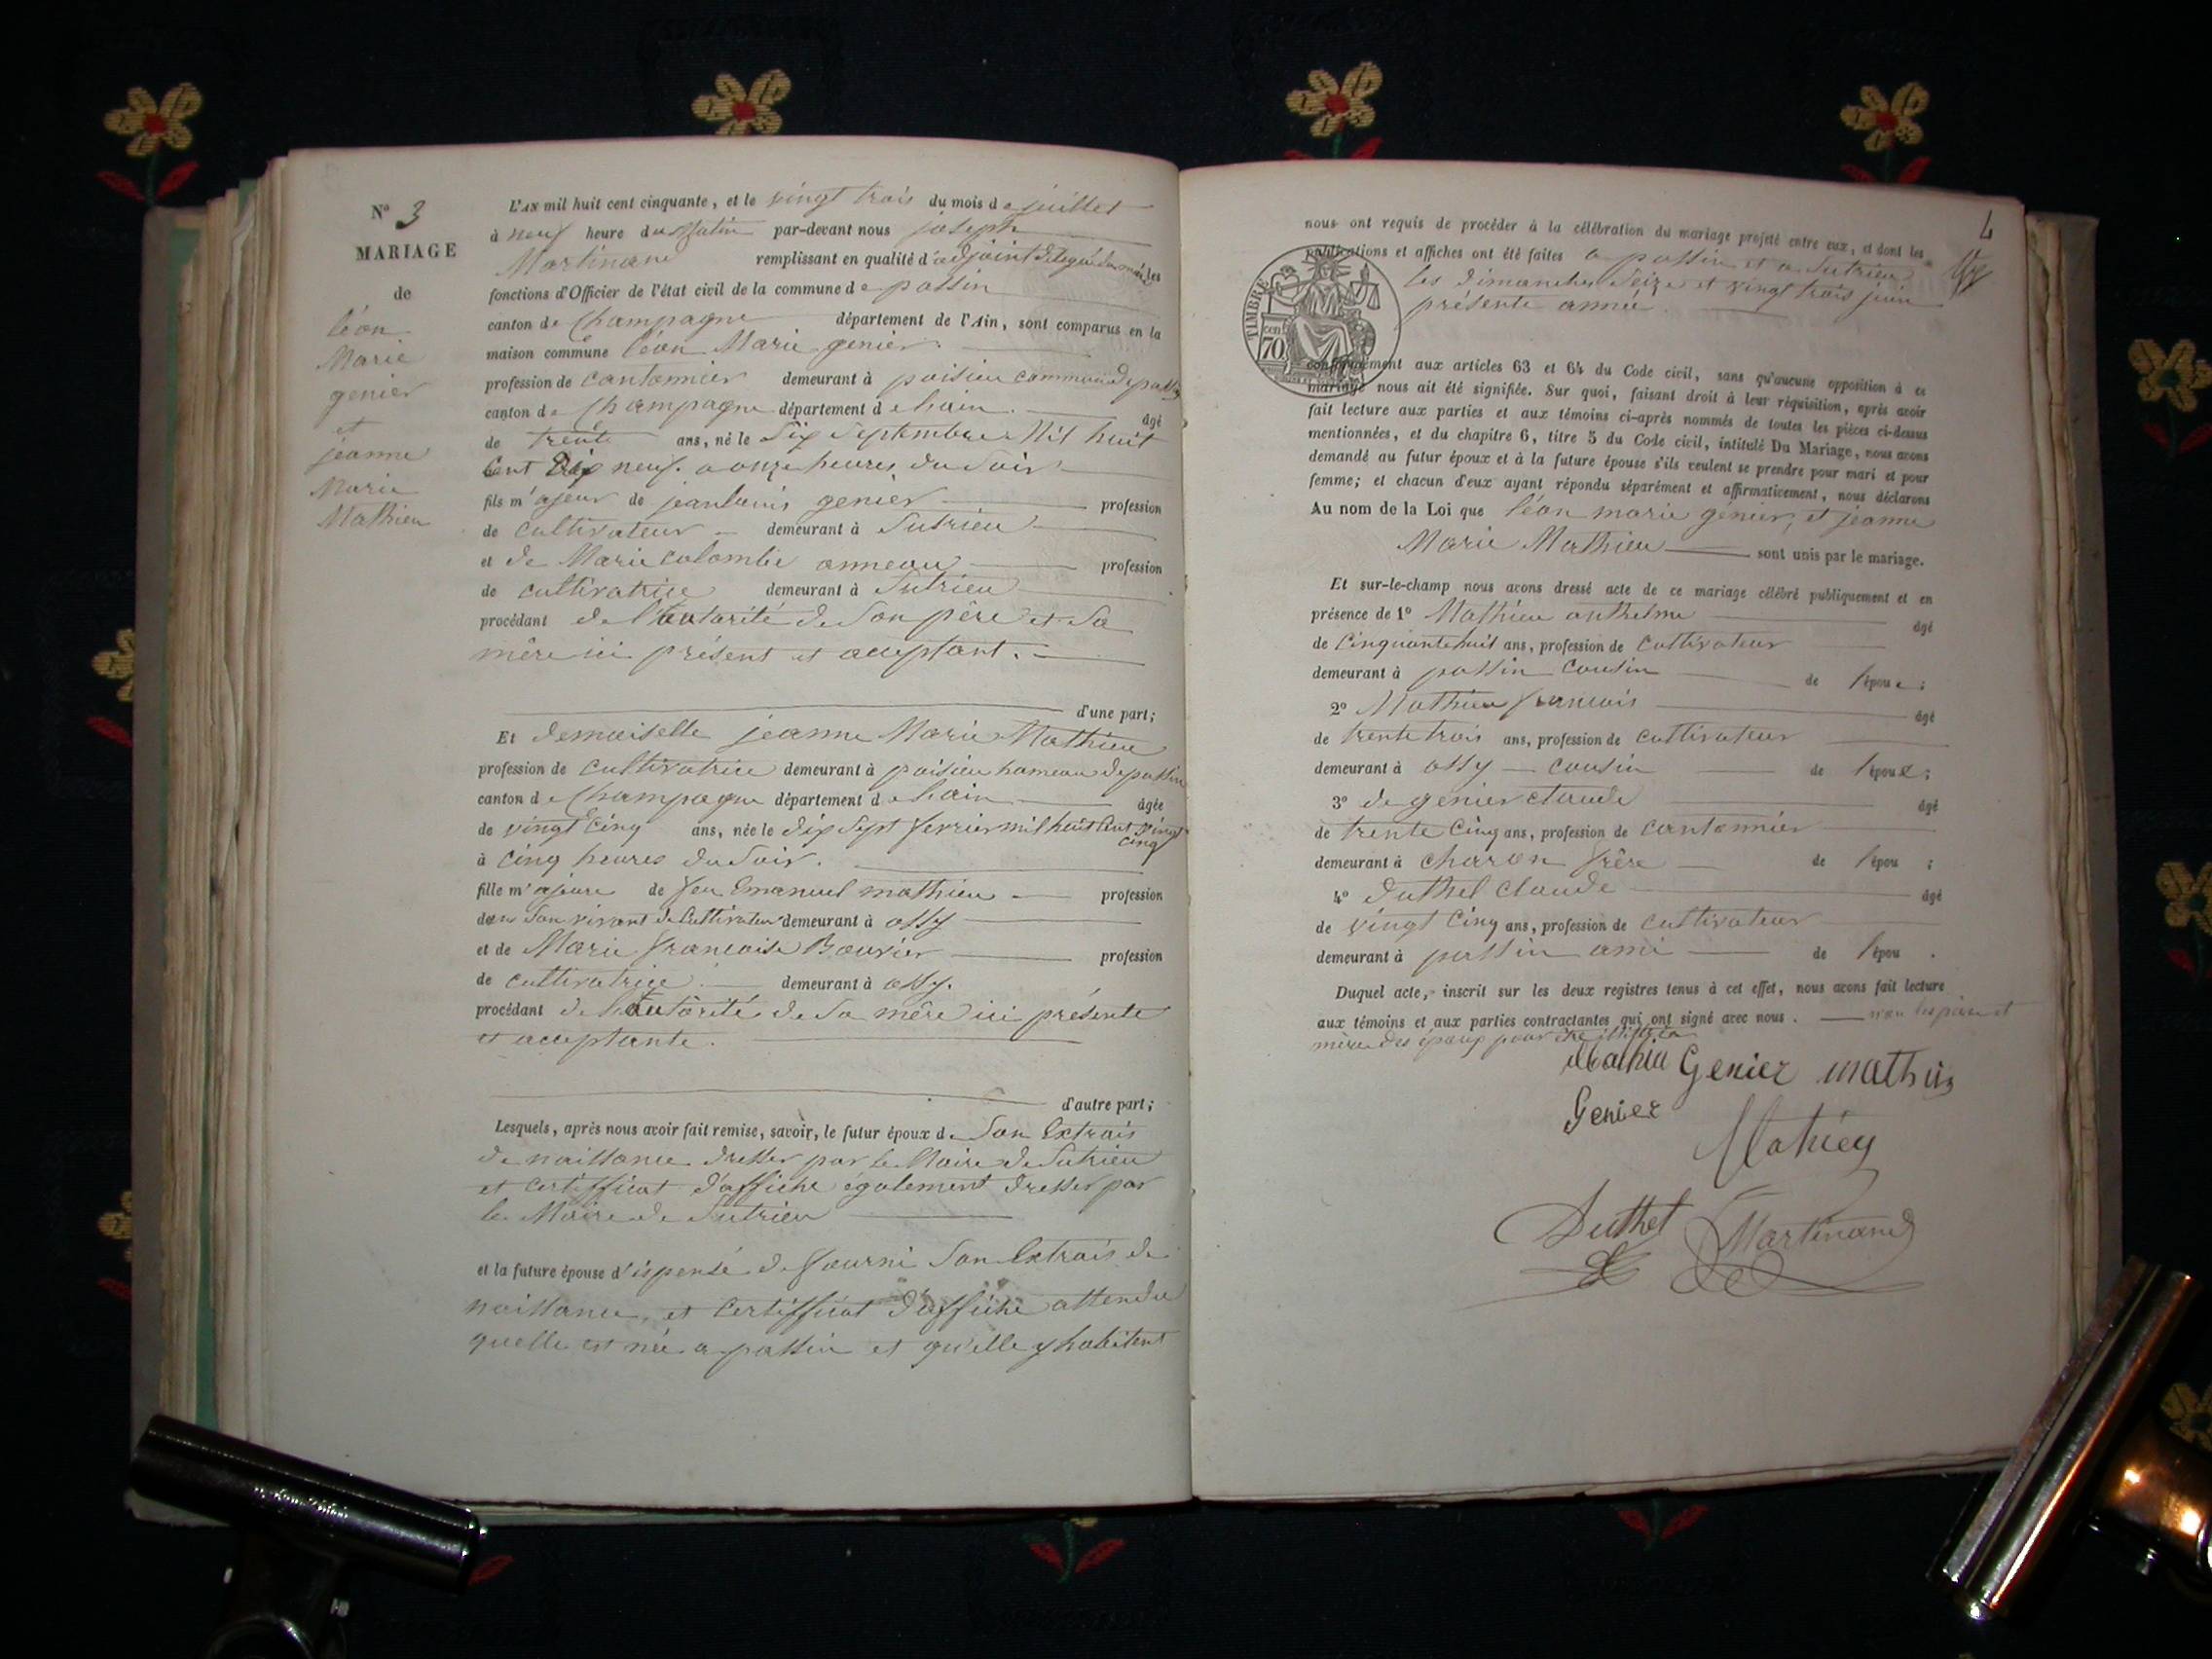 N° 3
MARIAGE
de
léon
Marie
genier
et
jeanne
Marie
Mathieu
L'AN mil huit cent cinquante, et le vingt trois du mois de juillet
à neuf heure du Matin par-devant nous joseph
Martinand remplissant en qualité d'adjoint délégué du maire les
fonctions d'Officier de l'état civil de la commune de passin
canton de Champagne département de l'Ain, sont comparus en la
maison commune léon Marie genier
profession de cantonnier demeurant à poisieu commune de passin
canton de Champagne département de hain âgé
de trente ans, né le Six Septembre Mil huit
Cent Dix neuf a onze heures du Soir
fils majeur de jean louis genier profession
de cultivateur demeurant à Sutrieu
et de Marie colombe anneau profession
de cultivatrice demeurant à Sutrieu
procédant de l'autorité de Son père et Sa
mère ici présent et acceptant.
d'une part;
Et demoiselle jeanne Marie Mathieu
profession de cultivatrice demeurant à poisieu hameau de passin
canton de Champagne département de hain âgée
de vingt Cinq ans, née le dix Sept fevrier mil huit Cent vingt
cinq
à Cinq heures du Soir.
fille majeure de feu Emanuel mathieu profession
dans Son vivant de Cultivateur demeurant à ossy
et de Marie francoise Bouvier profession
de cultivatrice demeurant à ossy.
procédant de l'autorité de Sa mère ici présente
et acceptante.
d'autre part;
Lesquels, après nous avoir fait remise, savoir, le futur époux de Son Extrais
de naissance dresser par le Maire de Sutrieu
et Certifficat d'affiche également dresser par
le Maire de Sutrieu
et la future épouse dispensé de fourni Son Extrais de
naissance, et Certifficat d'affiche attendu
quelle est née a passin et qu'elle y habitent
4
nous ont requis de procéder à la célébration du mariage projeté entre eux, et dont les
publications et affiches ont été faites a passin et a Sutrieu
les dimanches Seize et vingt trois juin
présente année.
TIMBRE
cen
70
conformément aux articles 63 et 64 du Code civil, sans qu'aucune opposition à ce
mariage nous ait été signifiée. Sur quoi, faisant droit à leur réquisition, après avoir
fait lecture aux parties et aux témoins ci-après nommés de toutes les pièces ci-dessus
mentionnées, et du chapitre 6, titre 5 du Code civil, intitulé Du Mariage, nous avons
demandé au futur époux et à la future épouse s'ils veulent se prendre pour mari et pour
femme; et chacun d'eux ayant répondu séparément et affirmativement, nous déclarons
Au nom de la Loi que léon marie génier, et jeanne
Marie Mathieu sont unis par le mariage.
Et sur-le-champ nous avons dressé acte de ce mariage célébré publiquement et en
présence de 1° Mathieu anthelme âgé
de Cinquante huit ans, profession de Cultivateur
demeurant à passin cousin de l'épouse;
2° Mathieu francois âgé
de trente trois ans, profession de cultivateur
demeurant à ossy cousin de l'épouse;
3° de genier claude âgé
de trente Cinq ans, profession de cantonnier
demeurant à charon frère de l'épou ;
4° duthel claude âgé
de vingt Cinq ans, profession de cultivateur
demeurant à passin ami de l'épou .
Duquel acte, inscrit sur les deux registres tenus à cet effet, nous avons fait lecture
aux témoins et aux parties contractantes qui ont signé avec nous. non les père et
mère des époux pour être
Genier mathieu
Genier
Mathieu
Duthel Martinand